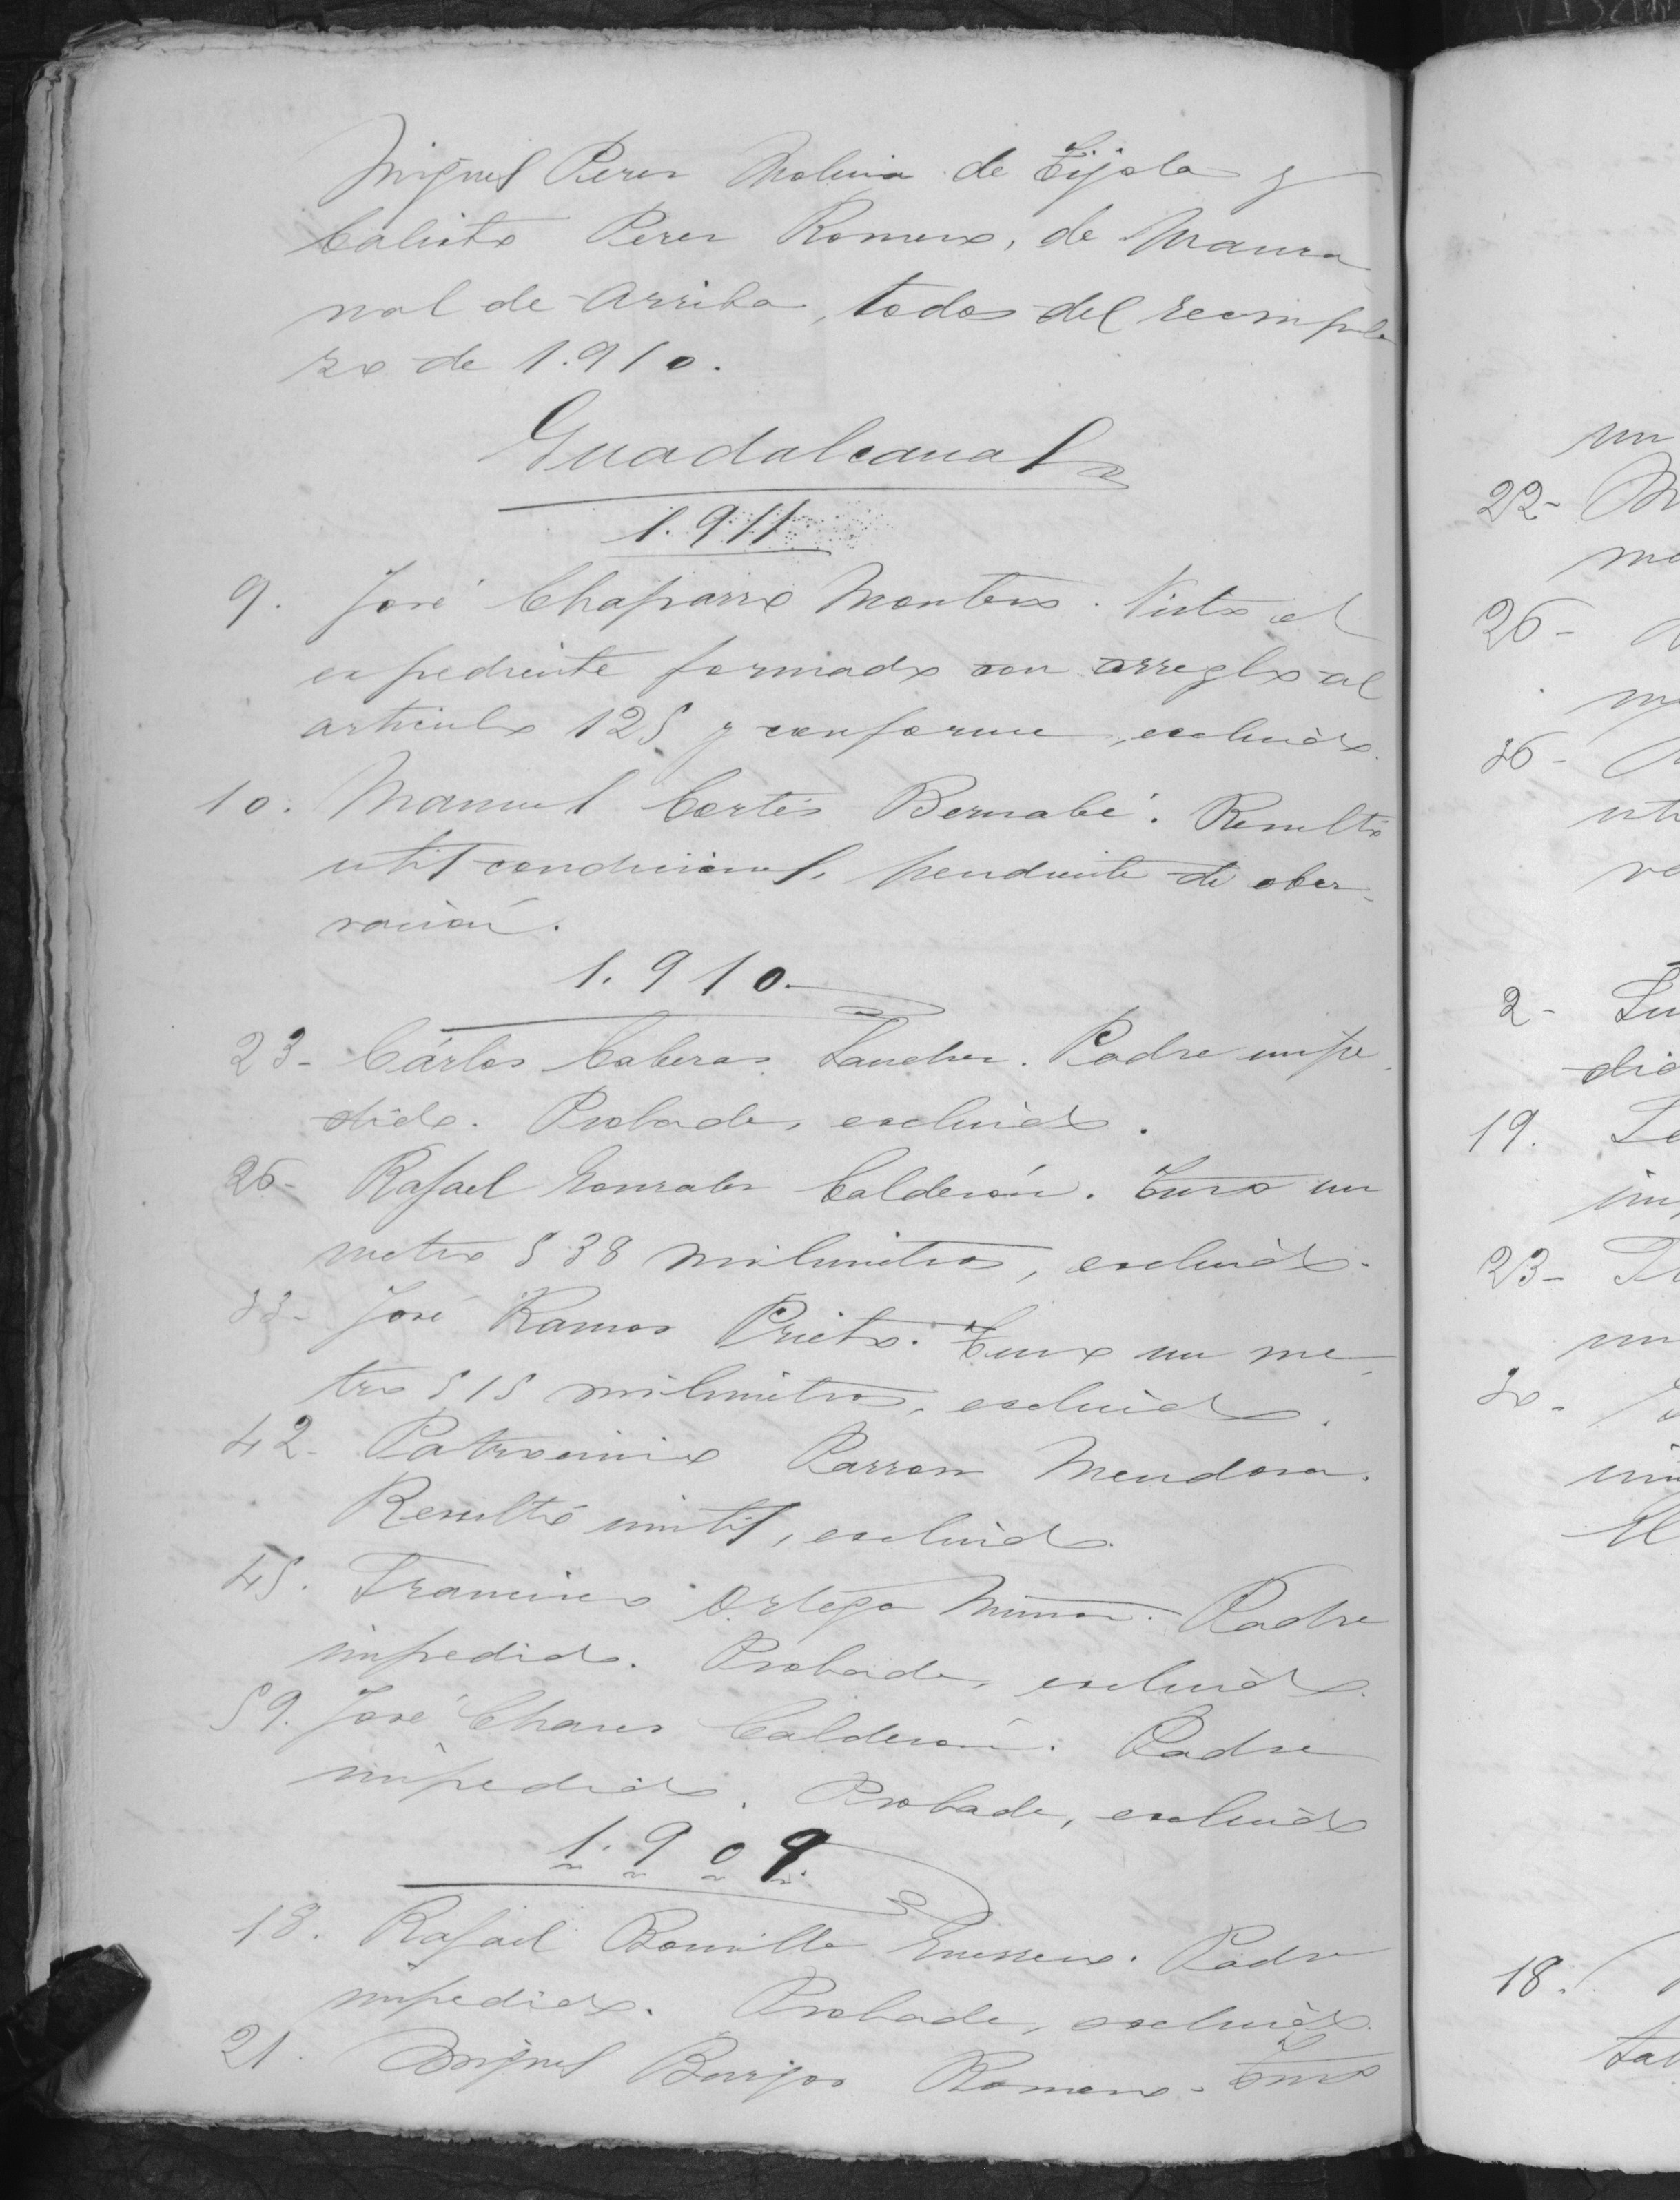 Miguel Perez Molina de Tijola y
Calisto Perez Romero, de Manza
nal de Arriba, todos del reempla
zo de 1.910.
Guadalcanal
1.911
9. José Chaparro Montero. Visto el
expediente formado con arreglo al
articulo 125 y conforme, excluido.
10. Manuel Cortés Bernabé. Resultó
util condicional, pendiente de obser-
vación.
1.910
23- Cárlos Caberas Sanchez. Padre impe
dido. Probado, excluido.
26- Rafael Gonzalez Calderón. Tuvo un
metro 538 milimetros, excluido.
33- José Ramos Prieto. Tuvo un me
tro 515 milimetros, excluido.
42- Patrocinio Parron Mendoza.
Resultó inutil, excluido.
45. Francisco Ortega Munoz. Padre
impedido. Probado, excluido.
59. José Chaves Calderón. Padre
impedido. Probado, excluido
1.909
18. Rafael Bonilla Guerrero. Padre
impedido. Probado, excluido.
21. Miguel Burgos Romero. Tuvo
un
22- M
me
26-
36-
uti
va
2- Su
dio
19.
im
23-
un
30-
inu
El
18.
tal